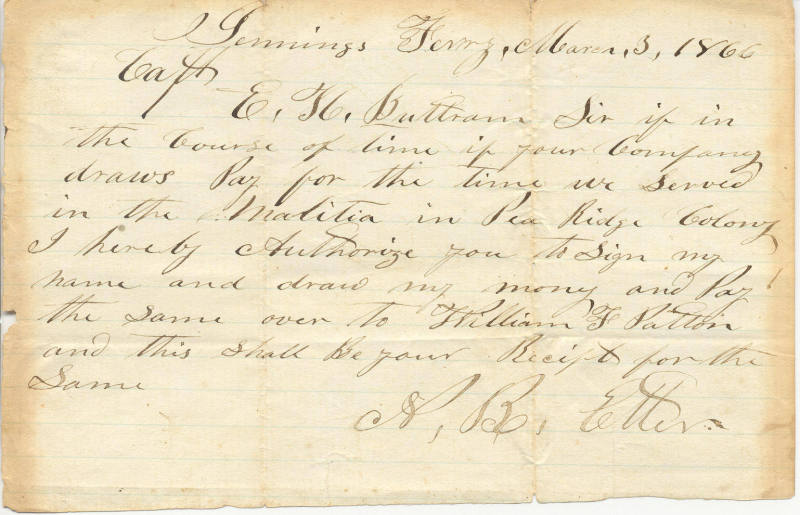 Jennings Ferry, March, 3, 1866
Capt
E, H, Buttram Sir if in
the Course of time if your Company
draws Pay for the time we Served
in the Malitia in Pea Ridge Colony
I hereby Authorize you to Sign my
name and draw my mony and Pay
the same over to William F Patton
and this shall Be your Recipt for the
Same
N, R, Etter